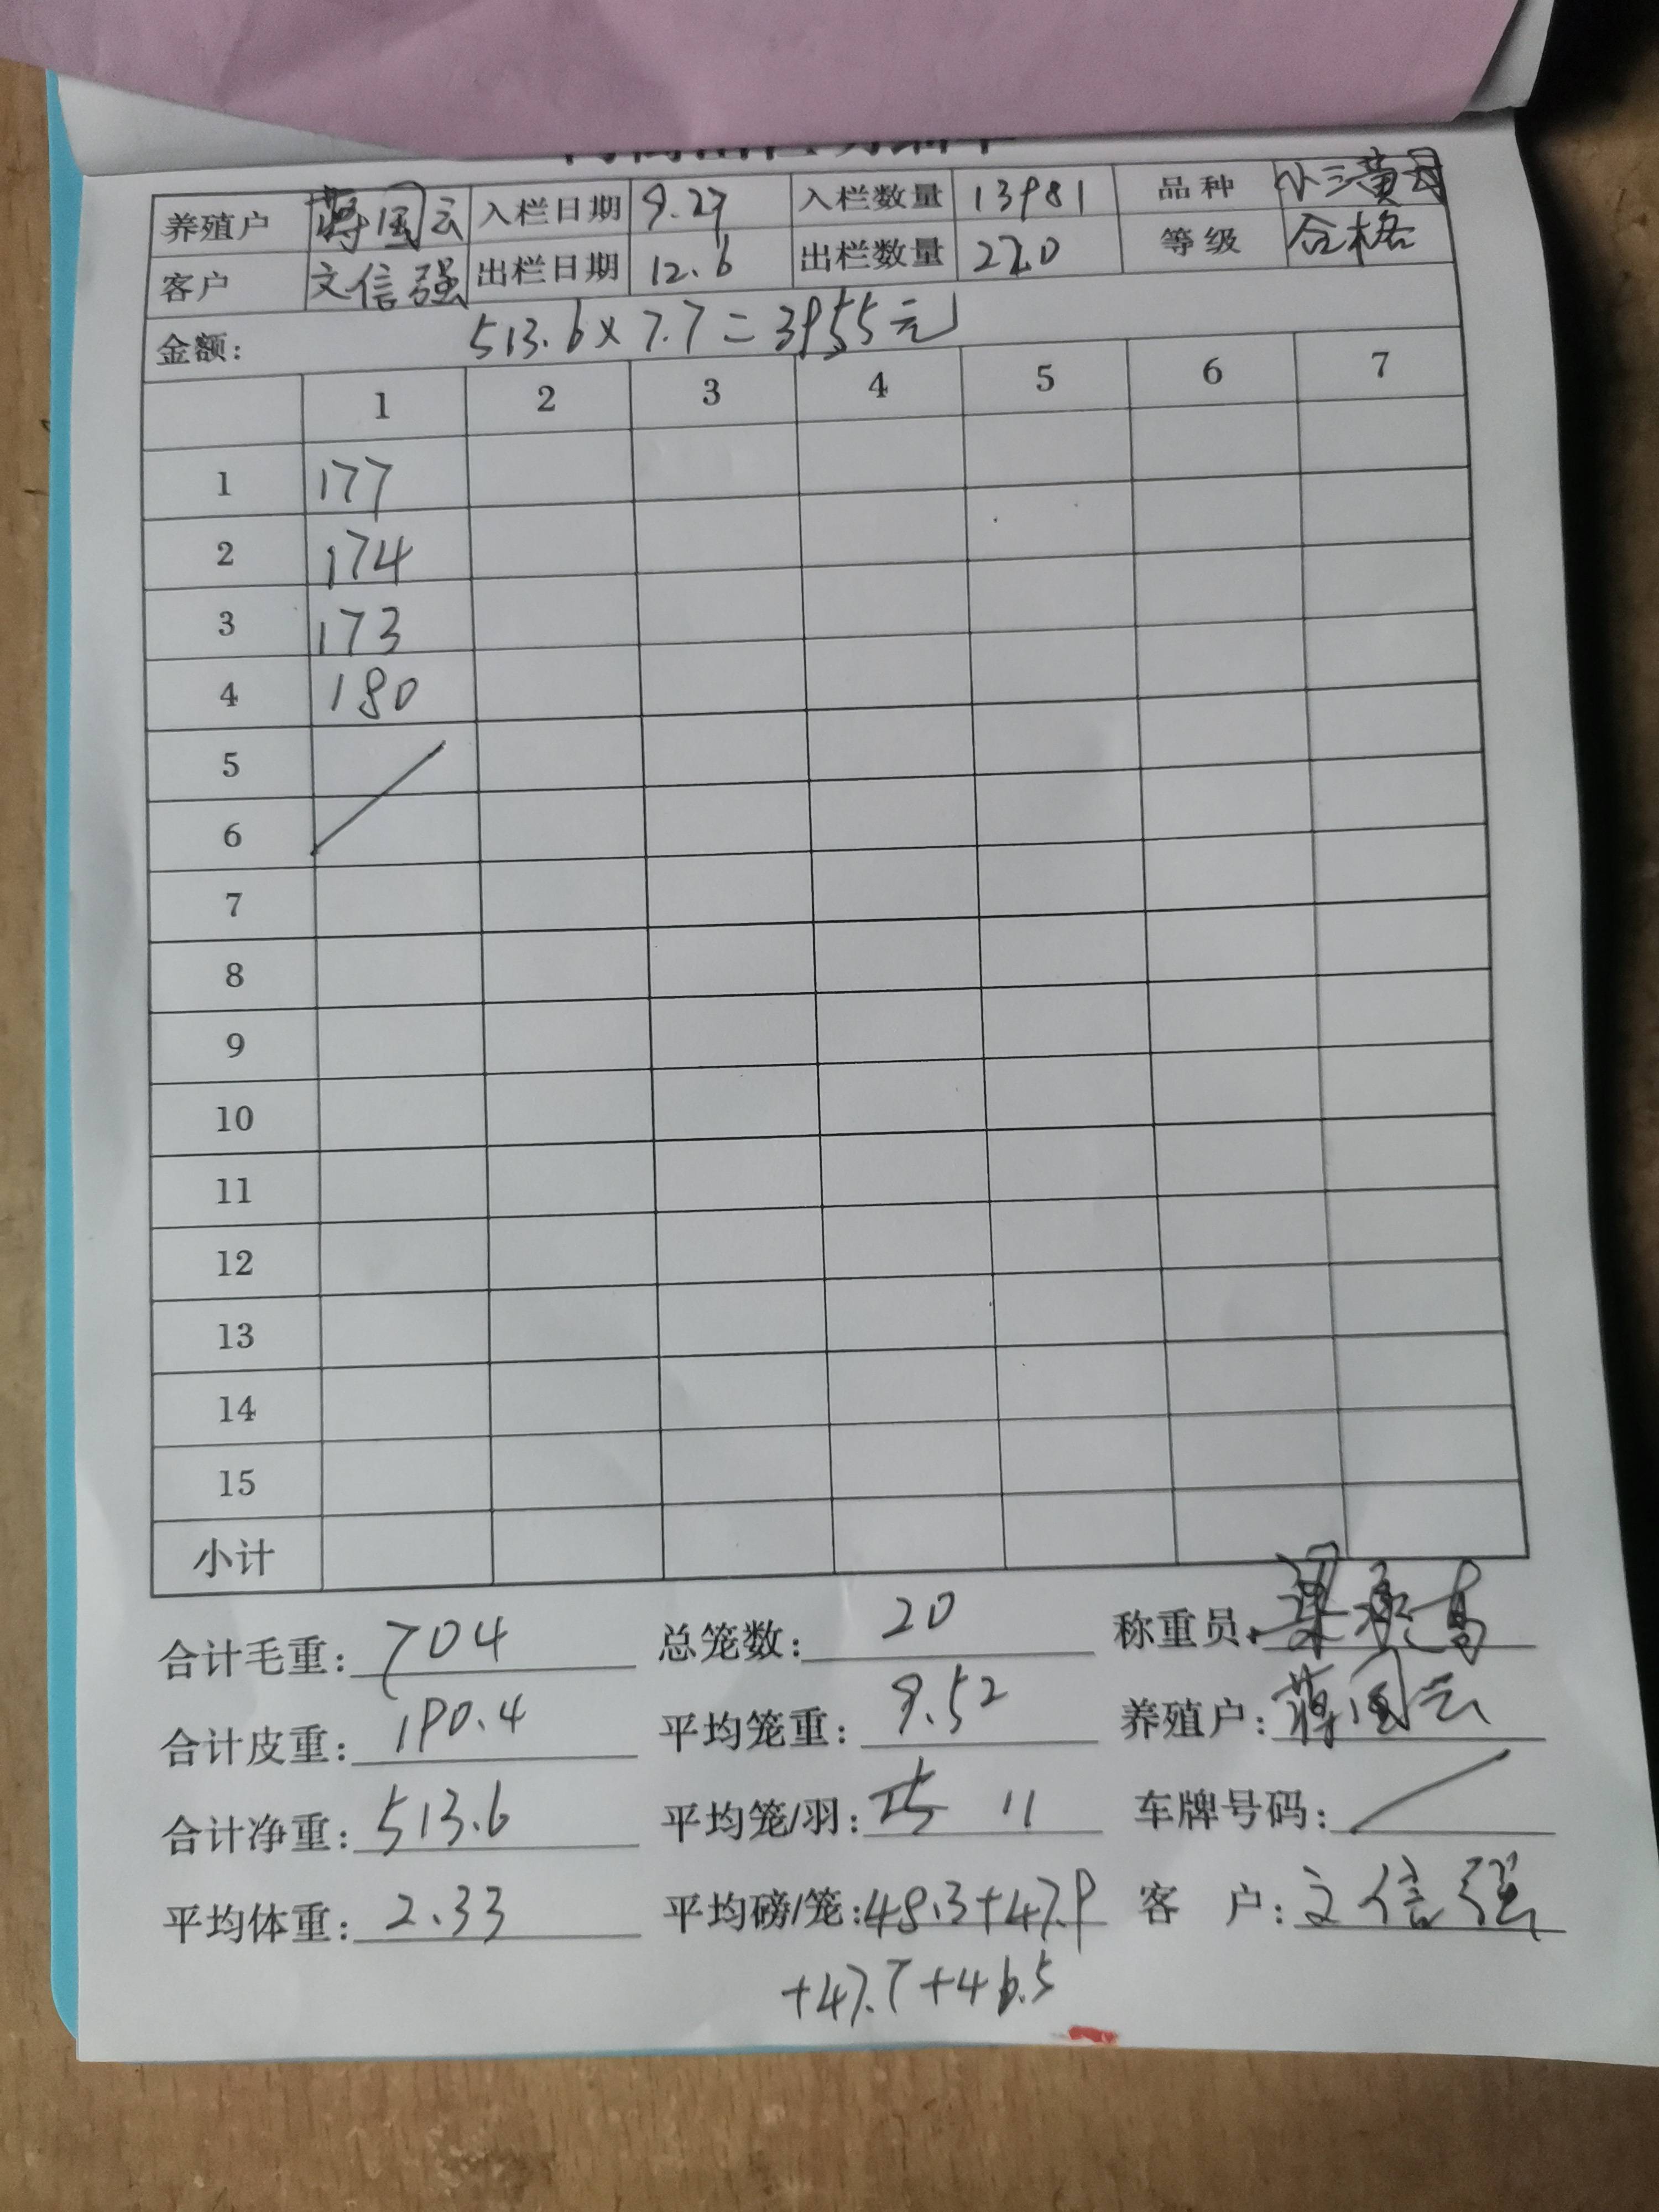 养殖户 蒋国云 入栏日期 9.27 入栏数量 13981 品种 小三黄母
客户 文信强 出栏日期 12.6 出栏数量 220 等级 合格
金额: 513.6×7.7=3955元
1 2 3 4 5 6 7
1 177
2 174
3 173
4 180
5
6
7
8
9
10
11
12
13
14
15
小计
合计毛重: 704 总笼数: 20 称重员:
合计皮重: 190.4 平均笼重: 9.52 养殖户: 蒋国云
合计净重: 513.6 平均笼/羽: 11 车牌号码: /
平均体重: 2.33 平均磅/笼: 48.3+47.9 客 户: 文信强
+47.7+46.5